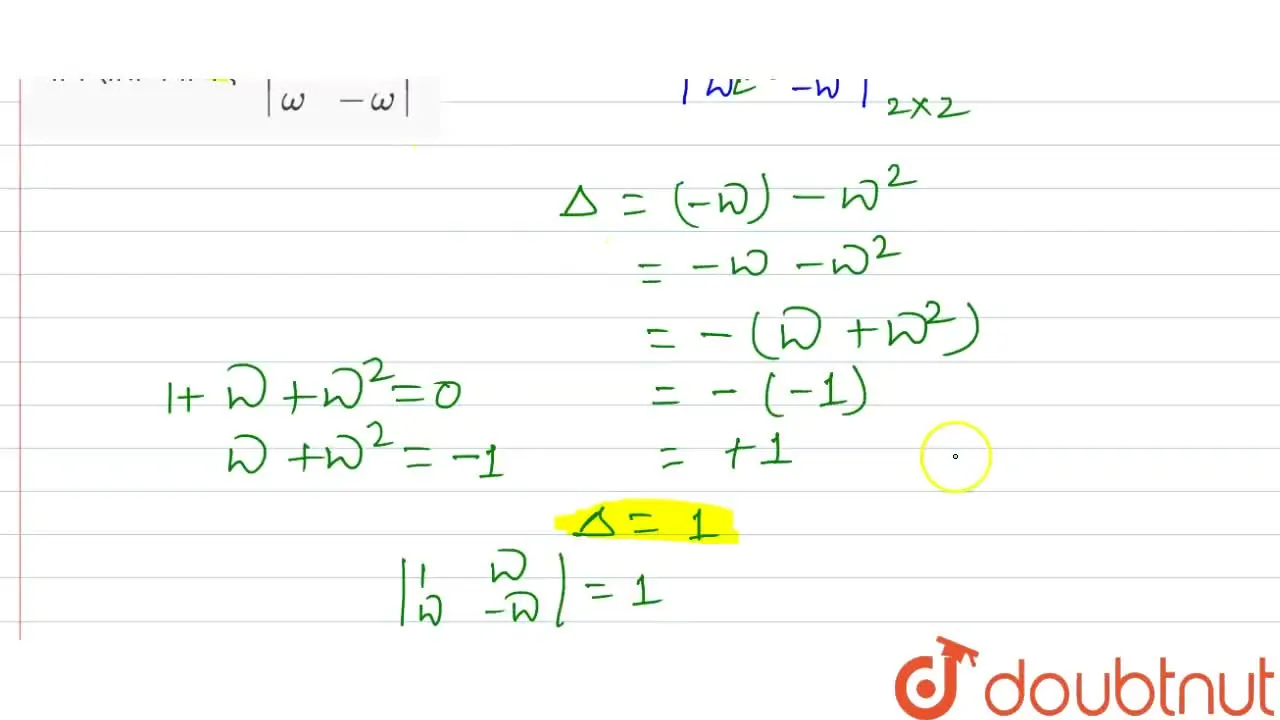 | ω  -ω |
| ω  -ω | 2×2
Δ = (-ω) - ω²
= -ω - ω²
= -(ω + ω²)
1 + ω + ω² = 0
= -(-1)
ω + ω² = -1
= +1
Δ = 1
| 1  ω |
| ω  -ω | = 1
doubtnut